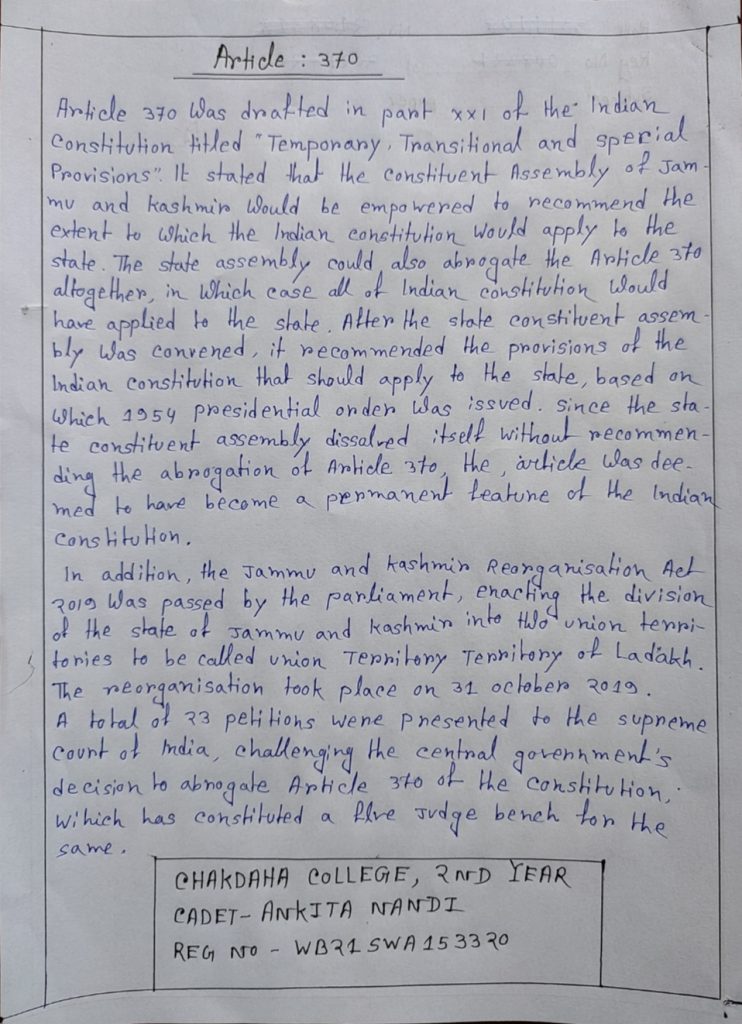 Article : 370
Article 370 Was drafted in part xxi of the Indian
Constitution titled "Temporary, Transitional and special
Provisions". It stated that the constituent Assembly of Jam-
mu and Kashmir Would be empowered to recommend the
extent to Which the Indian constitution Would apply to the
state. The state assembly could also abrogate the Article 370
altogether, in Which case all of Indian constitution Would
have applied to the state. After the state constituent assem-
bly Was convened, it recommended the provisions of the
Indian constitution that should apply to the state, based on
Which 1954 presidential order Was issued. Since the sta-
te constituent assembly dissalved itself Without recommen-
ding the abrogation of Article 370, the, article Was dee-
med to have become a permanent feature of the Indian
Constitution.
In addition, the Jammu and Kashmir Reorganisation Act
2019 Was passed by the parliament, enacting the division
of the state of Jammu and Kashmir into two union terri-
tories to be called union Territory Territory of Ladakh.
The reorganisation took place on 31 october 2019.
A total of 23 petitions were presented to the supreme
court of India, challenging the central government's
decision to abrogate Article 370 of the constitution,
Wihich has constituted a five Judge bench for the
same.
CHAKDAHA COLLEGE, 2ND YEAR
CADET- ANKITA NANDI
REG NO - WB21SWA153320